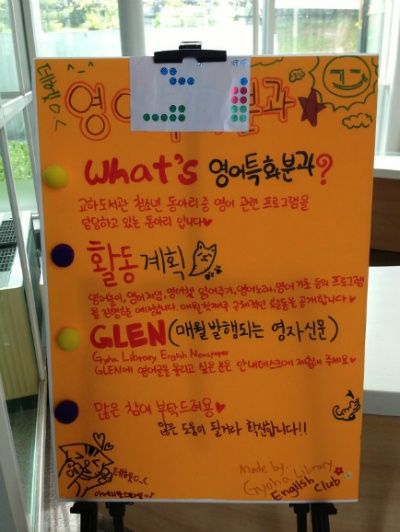 데헷>_<
영어특화분과
What's 영어특화분과?
교하도서관 청소년 동아리 중 영어 관련 프로그램을
담당하고 있는 동아리 입니다♥
활동계획
영어놀이, 영어체험, 영어책 읽어주기, 영어노래, 영어 기초 등의 프로그램
을 진행할 예정입니다. 매월 첫째주 구체적인 활동을 공개합니다♥
GLEN(매월 발행되는 영자신문)
Gyoha Library English Newspaper
GLEN에 영어글을 올리고 싶은 분은 안내데스크에 제출해 주세요♥
많은 참여 부탁드려용♥
많은 도움이 될거라 확신합니다!!
데헷>_<
Made by.
Gyoha Library
English Club